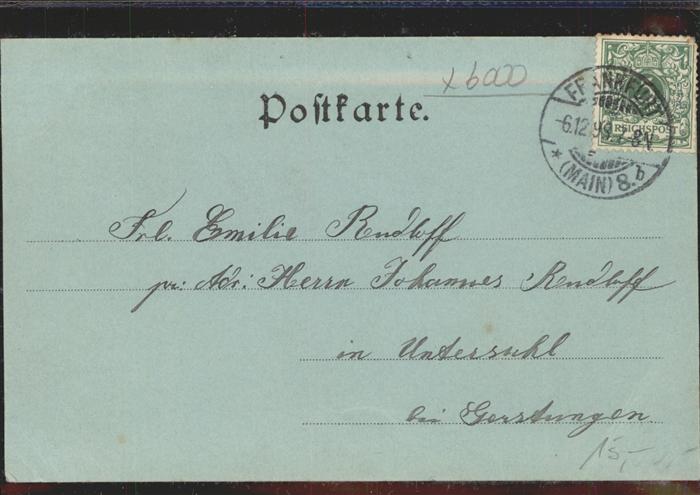 x6000
Postkarte.
FRANKFURT
-6.12.99.7-8V.
* (MAIN) 8.b
REICHSPOST
Frl. Emilie Rudloff
pr. Adr. Herrn Johannes Rudloff
in Untersuhl
bei Gerstungen.
15,-